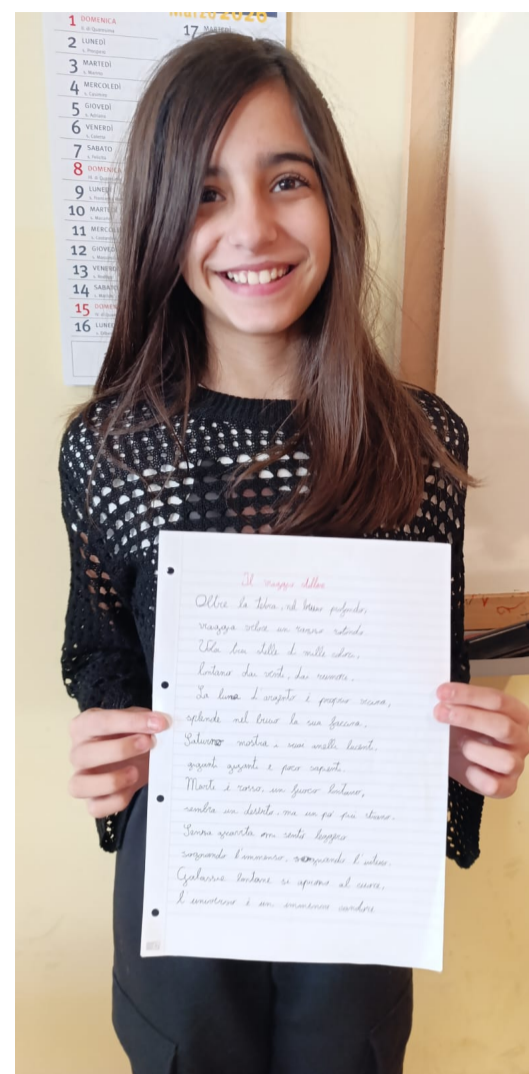 Marzo 2026
1 DOMENICA
2 LUNEDÌ
3 MARTEDÌ
4 MERCOLEDÌ
5 GIOVEDÌ
6 VENERDÌ
7 SABATO
8 DOMENICA
9 LUNEDÌ
10 MARTE
11 MERCOL
12 GIOVE
13 VENER
14 SABATO
15 DOMEN
16 LUNE
17 MARTEDÌ
Il viaggio
Oltre la terra, nel buio profondo,
viaggia veloce un rotondo
stelle di mille colori,
lontano dai venti, dai rumori.
La luna d'argento è proprio vicina,
splende nel buio la sua
Saturno mostra i suoi anelli lucenti,
giganti giganti e poco sapienti.
Marte è rosso, un fuoco lontano,
sembra un deserto, ma un po' più strano.
Senza gravità mi sento leggero
sognando l'immenso, sognando l'intero.
Galassie lontane si aprono al cuore,
l'universo è un immenso